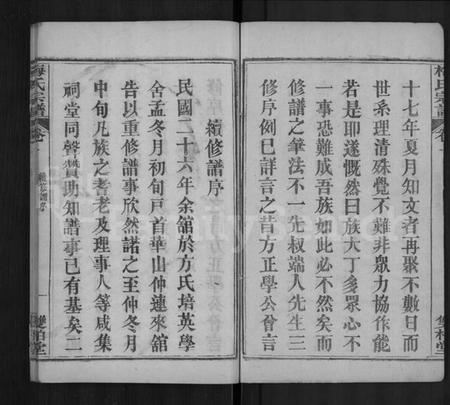 梅氏宗譜
卷
十七年夏月知文者再聚不數日而
世系理清殊覺不難非眾力協作能
若是耶遂慨然曰族大丁多眾心不
一事恐難成吾族如此必不然矣而
修譜之筆法不一先叔端人先生三
修序例已詳言之昔方正學公會言
續修譜序
民國二十六年余舘於方氏培英學
舍孟冬月初旬戸首華山仲連來舘
告以重修譜事欣然諾之至仲冬月
中旬凡族之耆老及理事人等咸集
祠堂同聲贊助知譜事已有基矣二
梅氏宗譜
卷一
續修譜序
一
雙柏堂